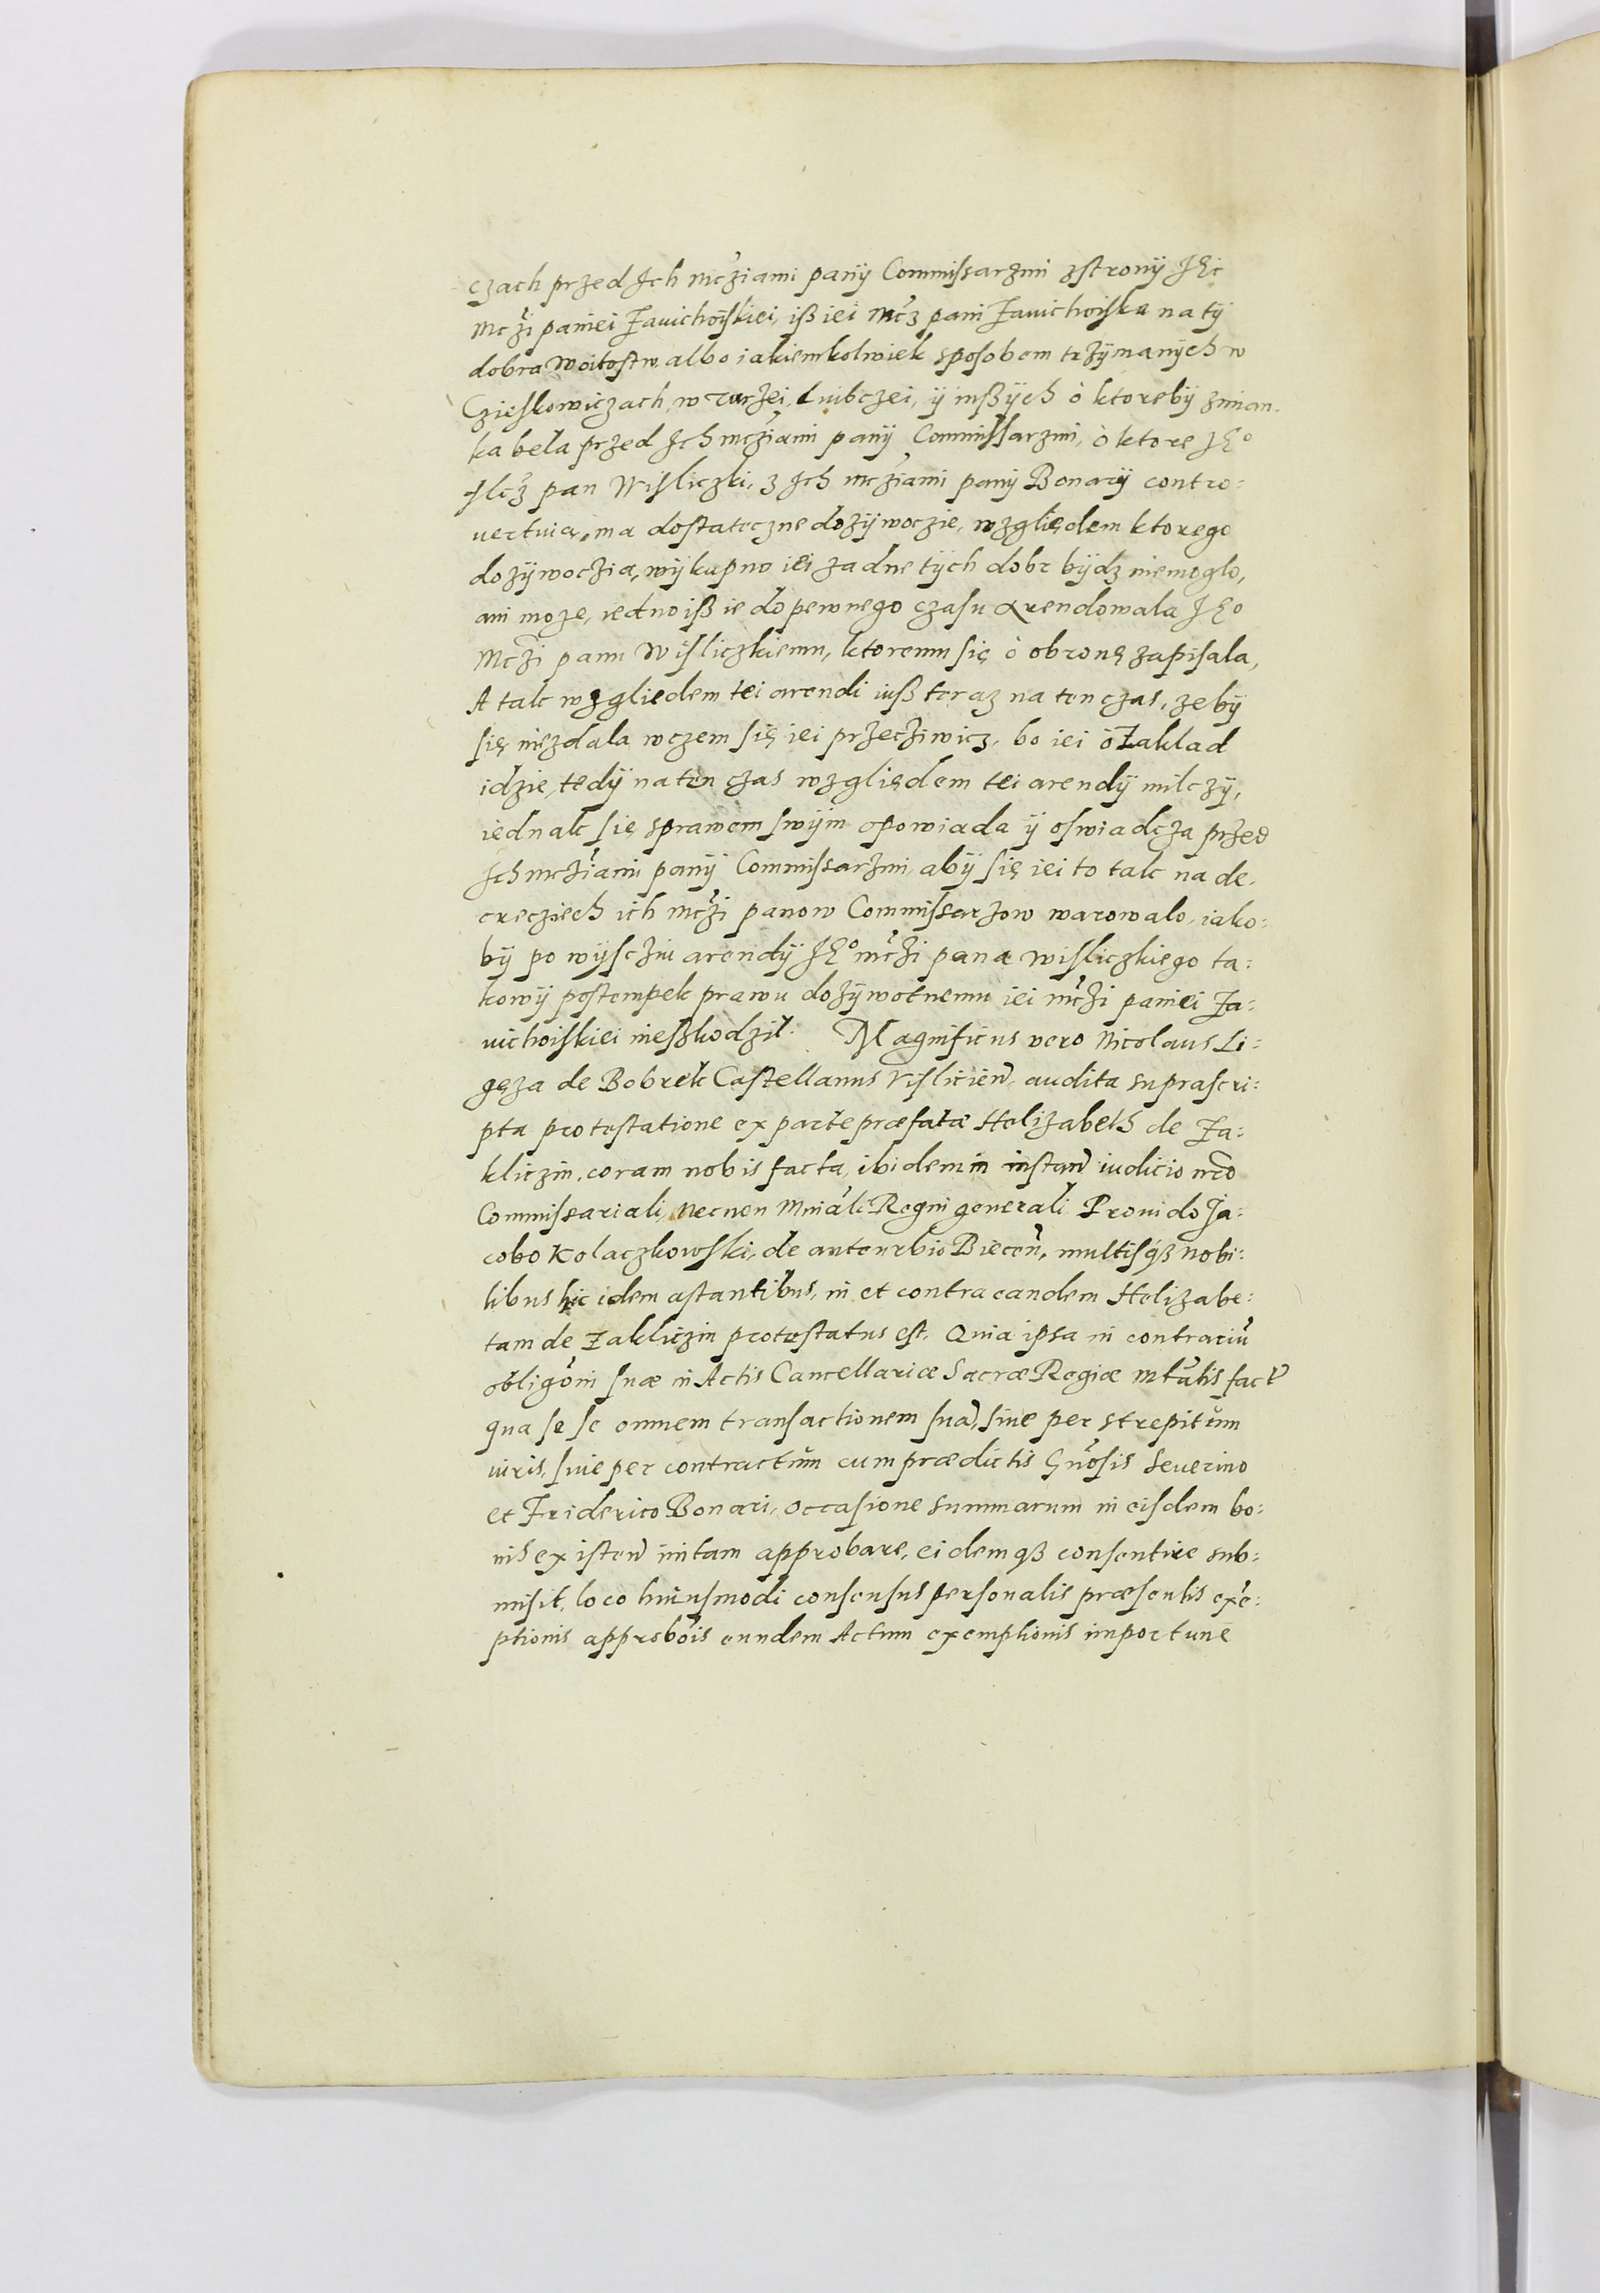 czach przed Ich mcziami pany Commissarzmi zstrony JEi
Mczi paniei Zauichoiskiei, iß iei Mcz pani Zauichoiska na ty
dobra woitostw albo iakiemkolwiek sposobem trzymanych w
Czieskowiczach, w Turzei, Luibczei, y inßych o ktoreby zmian-
ka bela przed Ich mcziami pany Commissarzmi, o ktore JEo
Mcz pan Wisliczki, z Ich mcziami pany Bonary contro:
uertuię, ma dostateczne dozywoczie, wzglięedem ktorego
dozywoczia, wykupno iei zadne tych dobr bydz niemoglo,
ani moze, iedno iß ie do pewnego czasu Arendowala JEo
Mczi panu Wisliczkiemu, ktoremu się o obronę zapisala,
A tak wzgliedem tei arendi iuß teraz na ten czas, zeby
się niezdala wczem się iei przecziwicz, bo iei o Zaklad
idzie, tedy na ten czas wzgliędem tei arendy milczy,
iednak się sprawem swym opowiada y oswiadcza przed
Ich mcziami pany Commissarzmi, aby się iei to tak na de-
creciech ich Mczi panow Commissarzow warowalo, iako:
by po wysciu arendy JEo mczi pana Wisliczkiego ta:
kowy postempek prawu dozywotnemu iei mczi paniei Za:
uichoiskiei nießkodzil. Magnificus vero Nicolaus Li:
gęza de Bobrek Castellanus Vislicien, audita suprascri:
pta protestatione ex parte præfatæ Helizabeth de Za:
kliczin, coram nobis facta, ibidem in instan iudicio nro
Commissariali, Necnon Mniali Regni generali Prouido Ja:
cobo Kolaczkowski, de anteurbio Biecen, multisqß Nobi:
libus hic idem astantibus, in et contra eandem Helizabe:
tam de Zakliczin protestatus est, Quia ipsa in contrariu
obligoni suæ in Actis Cancellariæ Sacræ Regiæ mtatis fact
qua se se omnem transactionem sua, siue per strepitum
iuris, siue per contractum cum prædictis Gnosis Seuerino
et Friderico Bonari, occasione summarum in eisdem bo:
nis existen initam approbare, eidemqß consentire sub:
misit, loco huiusmodi consensus personalis præsentis exe:
ptionis approbois eundem Actum exemptionis importune